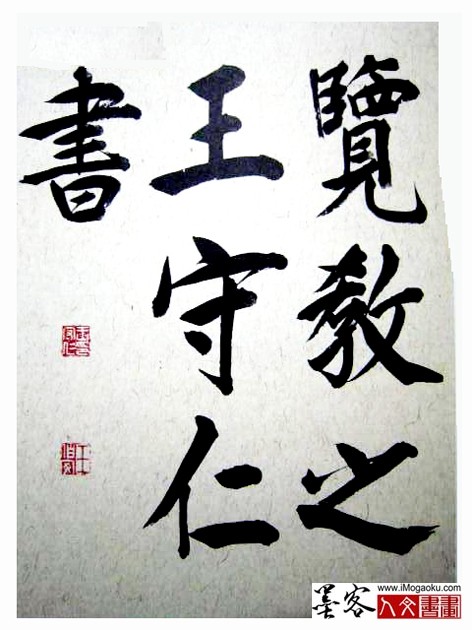 覽教之
王守仁
書
墨客
www.iMogaoku.com
人文書畫